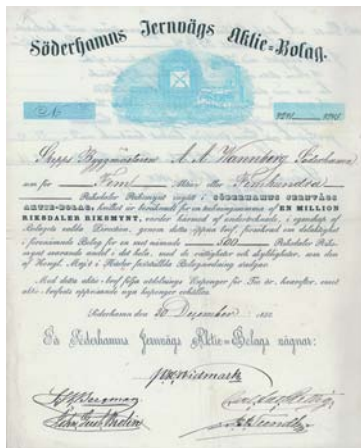 Söderhamns Jernvägs Aktie=Bolag.
Skepps Byggmästaren A. A. Wannberg, Söderhamn
som för Fem Aktier eller Femhundra
Riksdaler Riksmynt ingått i SÖDERHAMNS JERNVÄGS
AKTIE-BOLAG, hvilket är för ett bolagskapital af EN MILLION
RIKSDALER RIKSMYNT, varder härmed af undertecknade, i egenskap af
Bolagets valda Direction, genom detta öppna bref, försäkrad om delaktighet
i förenämnde Bolag för en mot nämnde 500 Riksdaler Riks-
mynt svarande andel i det hela, med de rättigheter och skyldigheter, som den
af Kongl. Maj:t i Nåder fastställda Bolagsordning stadgar.
Med detta aktie-bref följa utdelnings Kuponger för Tio år, hvarefter, mot
aktie-brefvets uppvisande nya kuponger erhållas.
Söderhamn den 30 December
På Söderhamns Jernvägs Aktie=Bolags vägnar:
Widmark
Bergman
Rettig